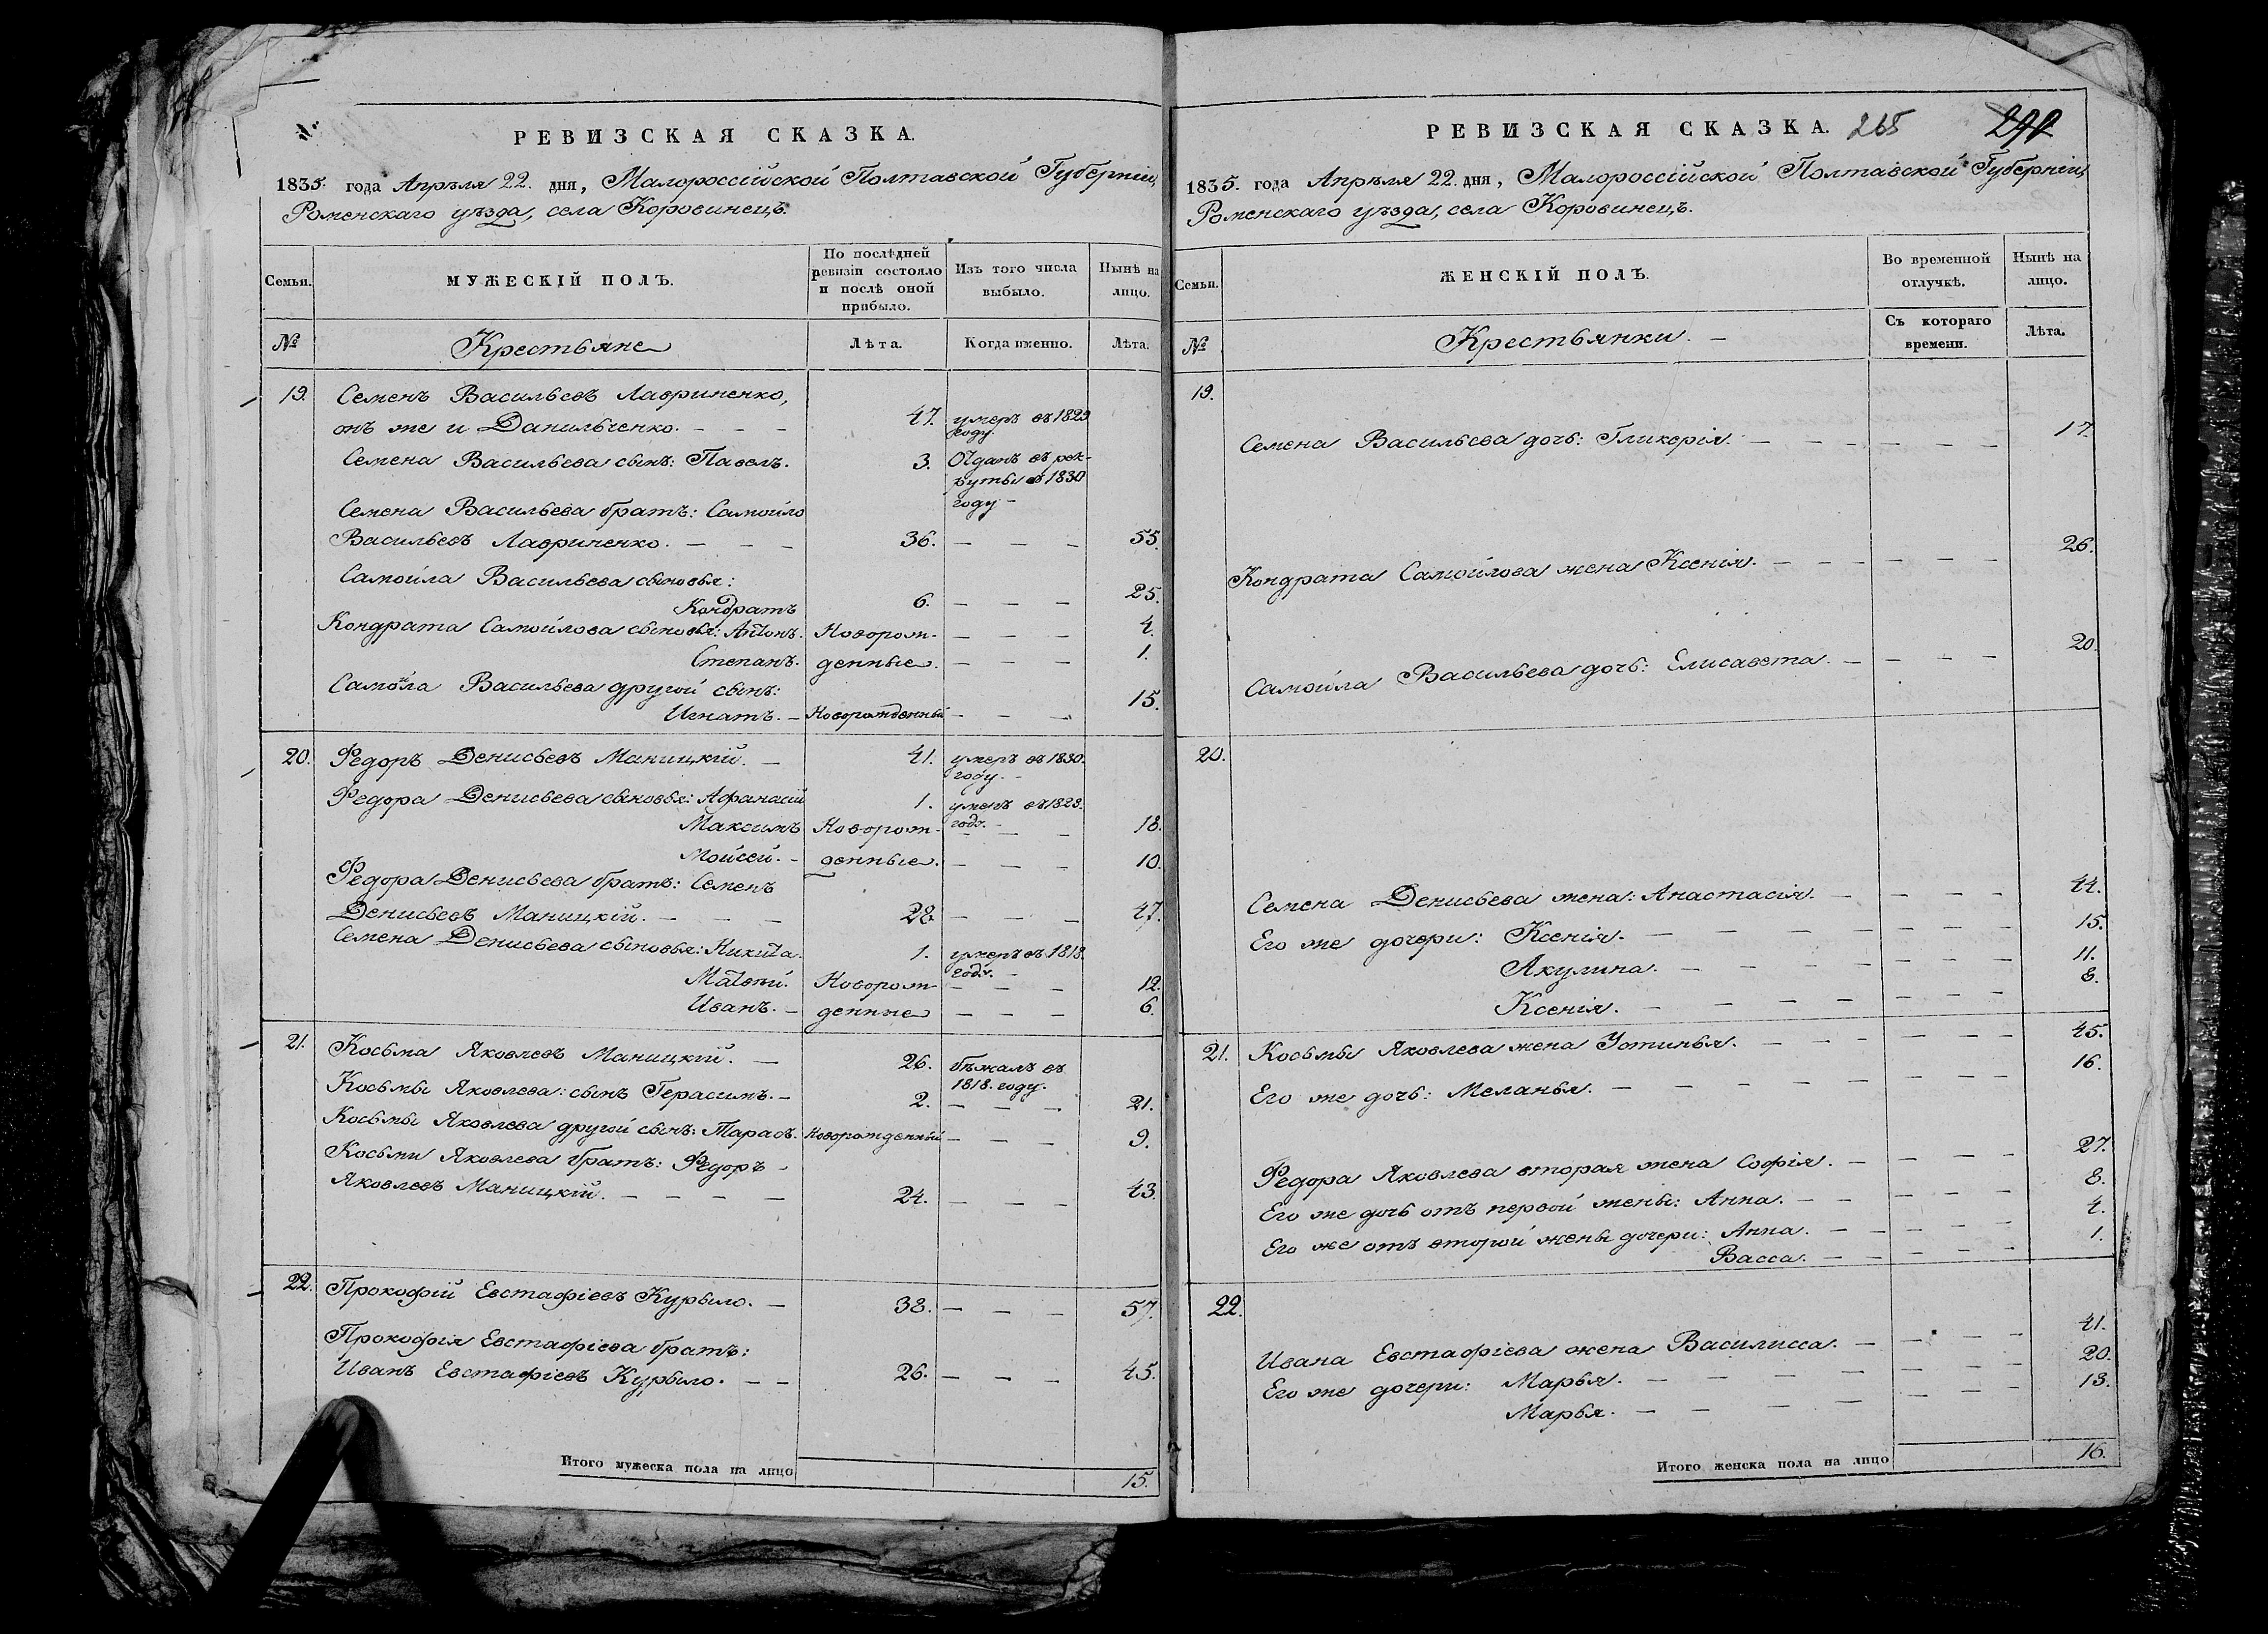 РЕВИЗСКАЯ СКАЗКА.
1835. года Апрѣля 22. дня, Малороссійской Полтавской Губерніи,
Роменскаго уѣзда, села Коровинецъ.
Семьи. МУЖЕСКІЙ ПОЛЪ. По послѣдней ревизіи состояло и послѣ оной прибыло. Изъ того числа выбыло. Нынѣ на лицо.
№ Крестьяне Лѣта. Когда именно. Лѣта.
19. Семенъ Васильевъ Лавриненко,
онъ же и Данильченко. — — — 47. умеръ въ 1829
году.
Семена Васильева сынъ: Павелъ. 3. Отданъ въ рек-
руты въ 1830
году —
Семена Васильева братъ: Самойло
Васильевъ Лавриненко. — — — 36. — — — 55.
Самойла Васильева сыновья:
Кондратъ 6. — — — 25.
Кондрата Самойлова сыновья: Антонъ. Новорож- — — — 4.
Степанъ. денные. — — — 1.
Самойла Васильева другой сынъ:
Игнатъ. — Новорожденный — — — 15.
20. Федоръ Денисьевъ Маницкій. — 41. умеръ въ 1830.
году. —
Федора Денисьева сыновья: Афанасій 1. умеръ въ 1828.
году. —
Максимъ Новорож- — — — 18.
Мойсей. — денные. — — — 10.
Федора Денисьева братъ: Семенъ
Денисьевъ Маницкій. — — — 28. — — — 47.
Семена Денисьева сыновья: Никита. 1. умеръ въ 1818.
году. —
Матвѣй. Новорож- — — — 12.
Иванъ. — денные — — — 6.
21. Косьма Яковлевъ Маницкій. — 26. бѣжалъ въ
1818. году.
Косьмы Яковлева: сынъ Герасимъ. — 2. — — — 21.
Косьмы Яковлева другой сынъ: Тарасъ. Новорожденный — — — 9.
Косьми Яковлева братъ: Федоръ —
Яковлевъ Маницкій. — — — — 24. — — — 43.
22. Прокофій Евстафіевъ Курыло. — 38. — — — 57.
Прокофія Евстафіева братъ:
Иванъ Евстафіевъ Курыло. — — 26. — — — 45.
Итого мужеска пола на лицо 15.
РЕВИЗСКАЯ СКАЗКА. 265
1835. года Апрѣля 22. дня, Малороссійской Полтавской Губерніи,
Роменскаго уѣзда, села Коровинецъ.
Семьи. ЖЕНСКІЙ ПОЛЪ. Во временной отлучкѣ. Нынѣ на лицо.
№ Крестьянки. — Съ котораго времени. Лѣта.
19.
Семена Васильева дочь: Гликерія. — — — — — — 17.
Кондрата Самойлова жена Ксенія. — — — — — — 26.
Самойла Васильева дочь: Елисавета. — — — — 20.
20.
Семена Денисьева жена: Анастасія. — — — — 44.
Его же дочери: Ксенія. — — — — — — — 15.
Акулина. — — — — — — — 11.
Ксенія. — — — — — — — 8.
21. Косьмы Яковлева жена Устинья. — — — — — — 45.
Его же дочь: Меланья. — — — — — — — — 16.
Федора Яковлева вторая жена Софія. — — — — 27.
Его же дочь отъ первой жены: Анна. — — — — — 8.
Его же отъ второй жены дочери: Анна. — — — — — 4.
Васса. — — — — — 1.
22.
Ивана Евстафіева жена Василисса. — — — — 41.
Его же дочери: Марья. — — — — — — — 20.
Марья. — — — — — — — 13.
Итого женска пола на лицо 16.